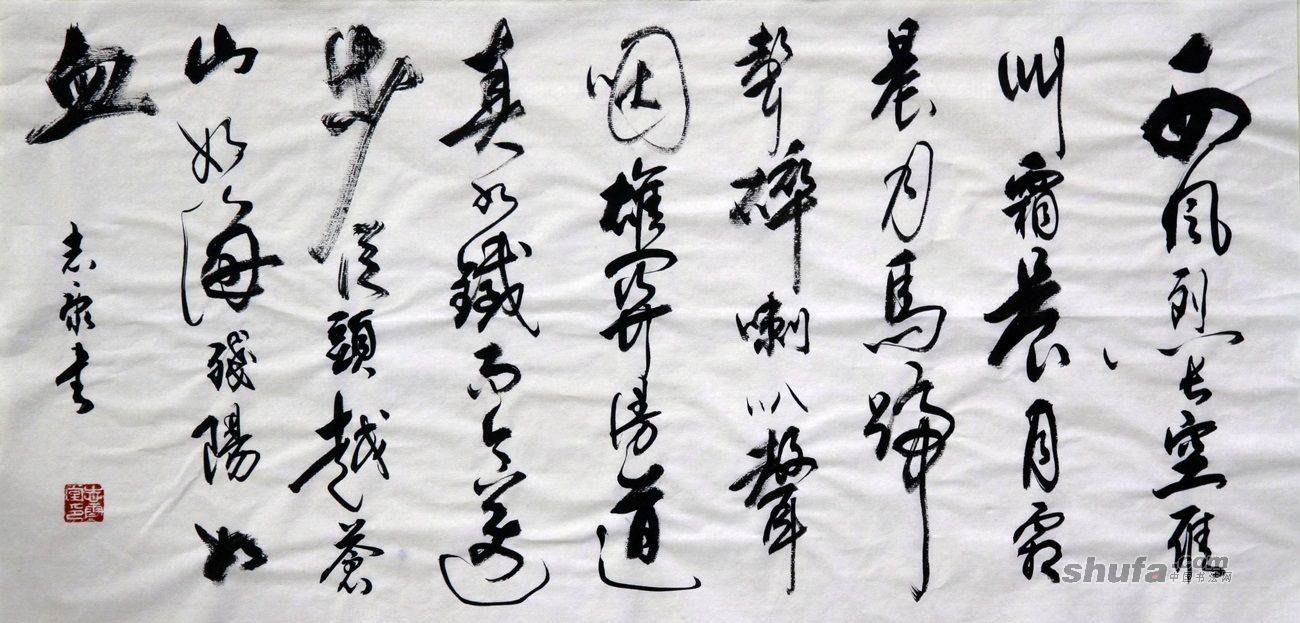 西風烈長空雁
叫霜晨月霜
晨月馬蹄
聲碎喇叭聲
咽雄關漫道
真如鐵而今邁
步從頭越蒼
山如海殘陽如
血
志書
shufa.com
中国书法网